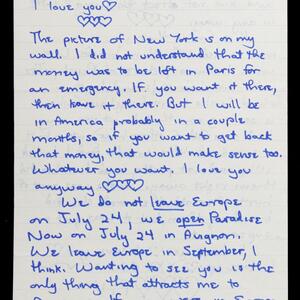 I love you♡
♡♡♡
The picture of New York is on my
wall. I did not understand that the
money was to be left in Paris for
an emergency. If you want it there,
then leave it there. But I will be
in America probably in a couple
months, so if you want to get back
that money, that would make sense too.
Whatever you want. I love you
anyway ♡♡♡♡
We do not leave Europe
on July 24, we open Paradise
Now on July 24 in Avignon.
We leave Europe in September, I
think. Wanting to see you is the
only thing that attracts me to